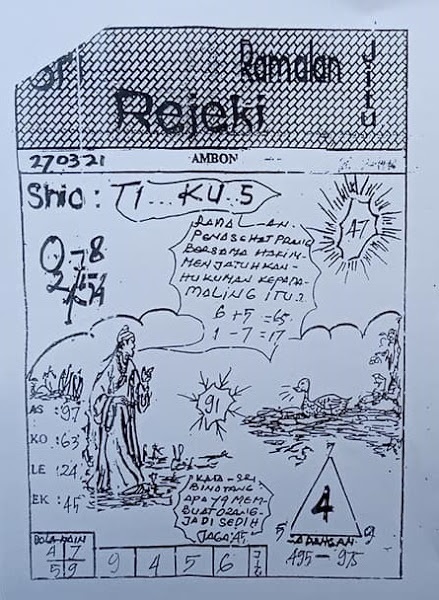 Sri
Ramalan
JITU
Rejeki
270321
AMBON
Shio : TI... KU.5
RAMALAN.
BERSAMA HAKIM
MENJATUHKAN-
HUKUMAN KEPADA-
MALING ITU.2
6 + 5 = 65
1 - 7 = 17
47
0-8
91
AS : 97
KO : 63
LE : 24
EK : 45
KATA - SRI
BINATANG
APA YG MEM-
BUAT ORANG-
JADI SEDIH
JAGA: 45
7
4
5
495 - 95
BOLA MAIN
4 7
5 9
9 4 5 6